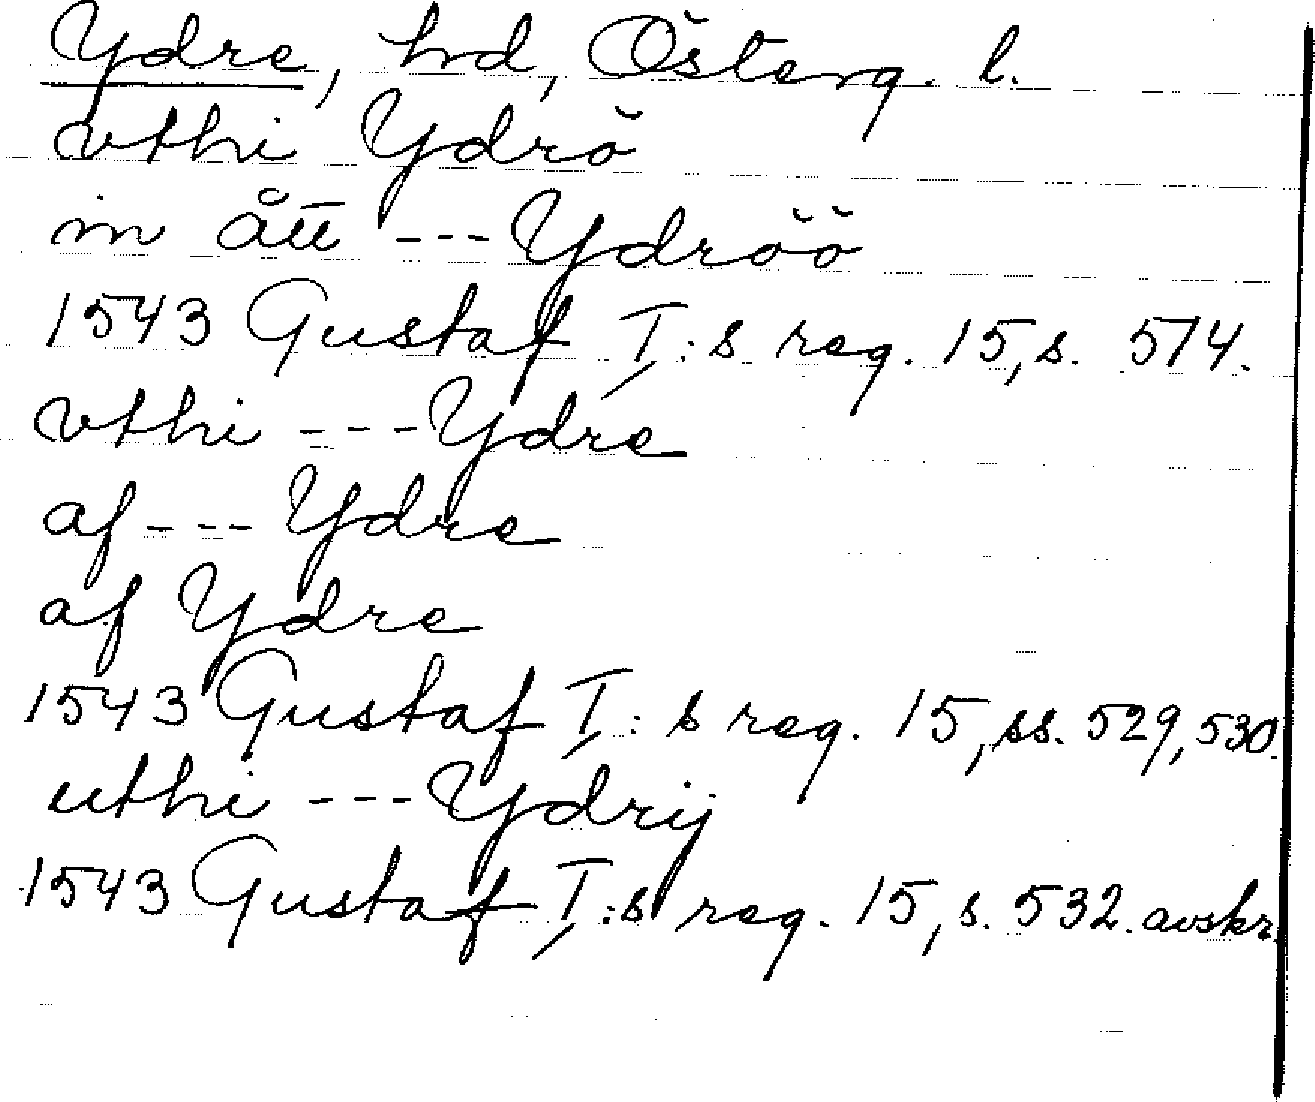 Ydre, hd, Österg. l.
vthi Ydrö
in ått --- Ydröö
1543 Gustaf I:s reg. 15, s. 574.
vthi --- Ydre
af --- Ydre
af Ydre
1543 Gustaf I:s reg. 15, ss. 529, 530.
uthi --- Ydrij
1543 Gustaf I:s reg. 15, s. 532. avskr.